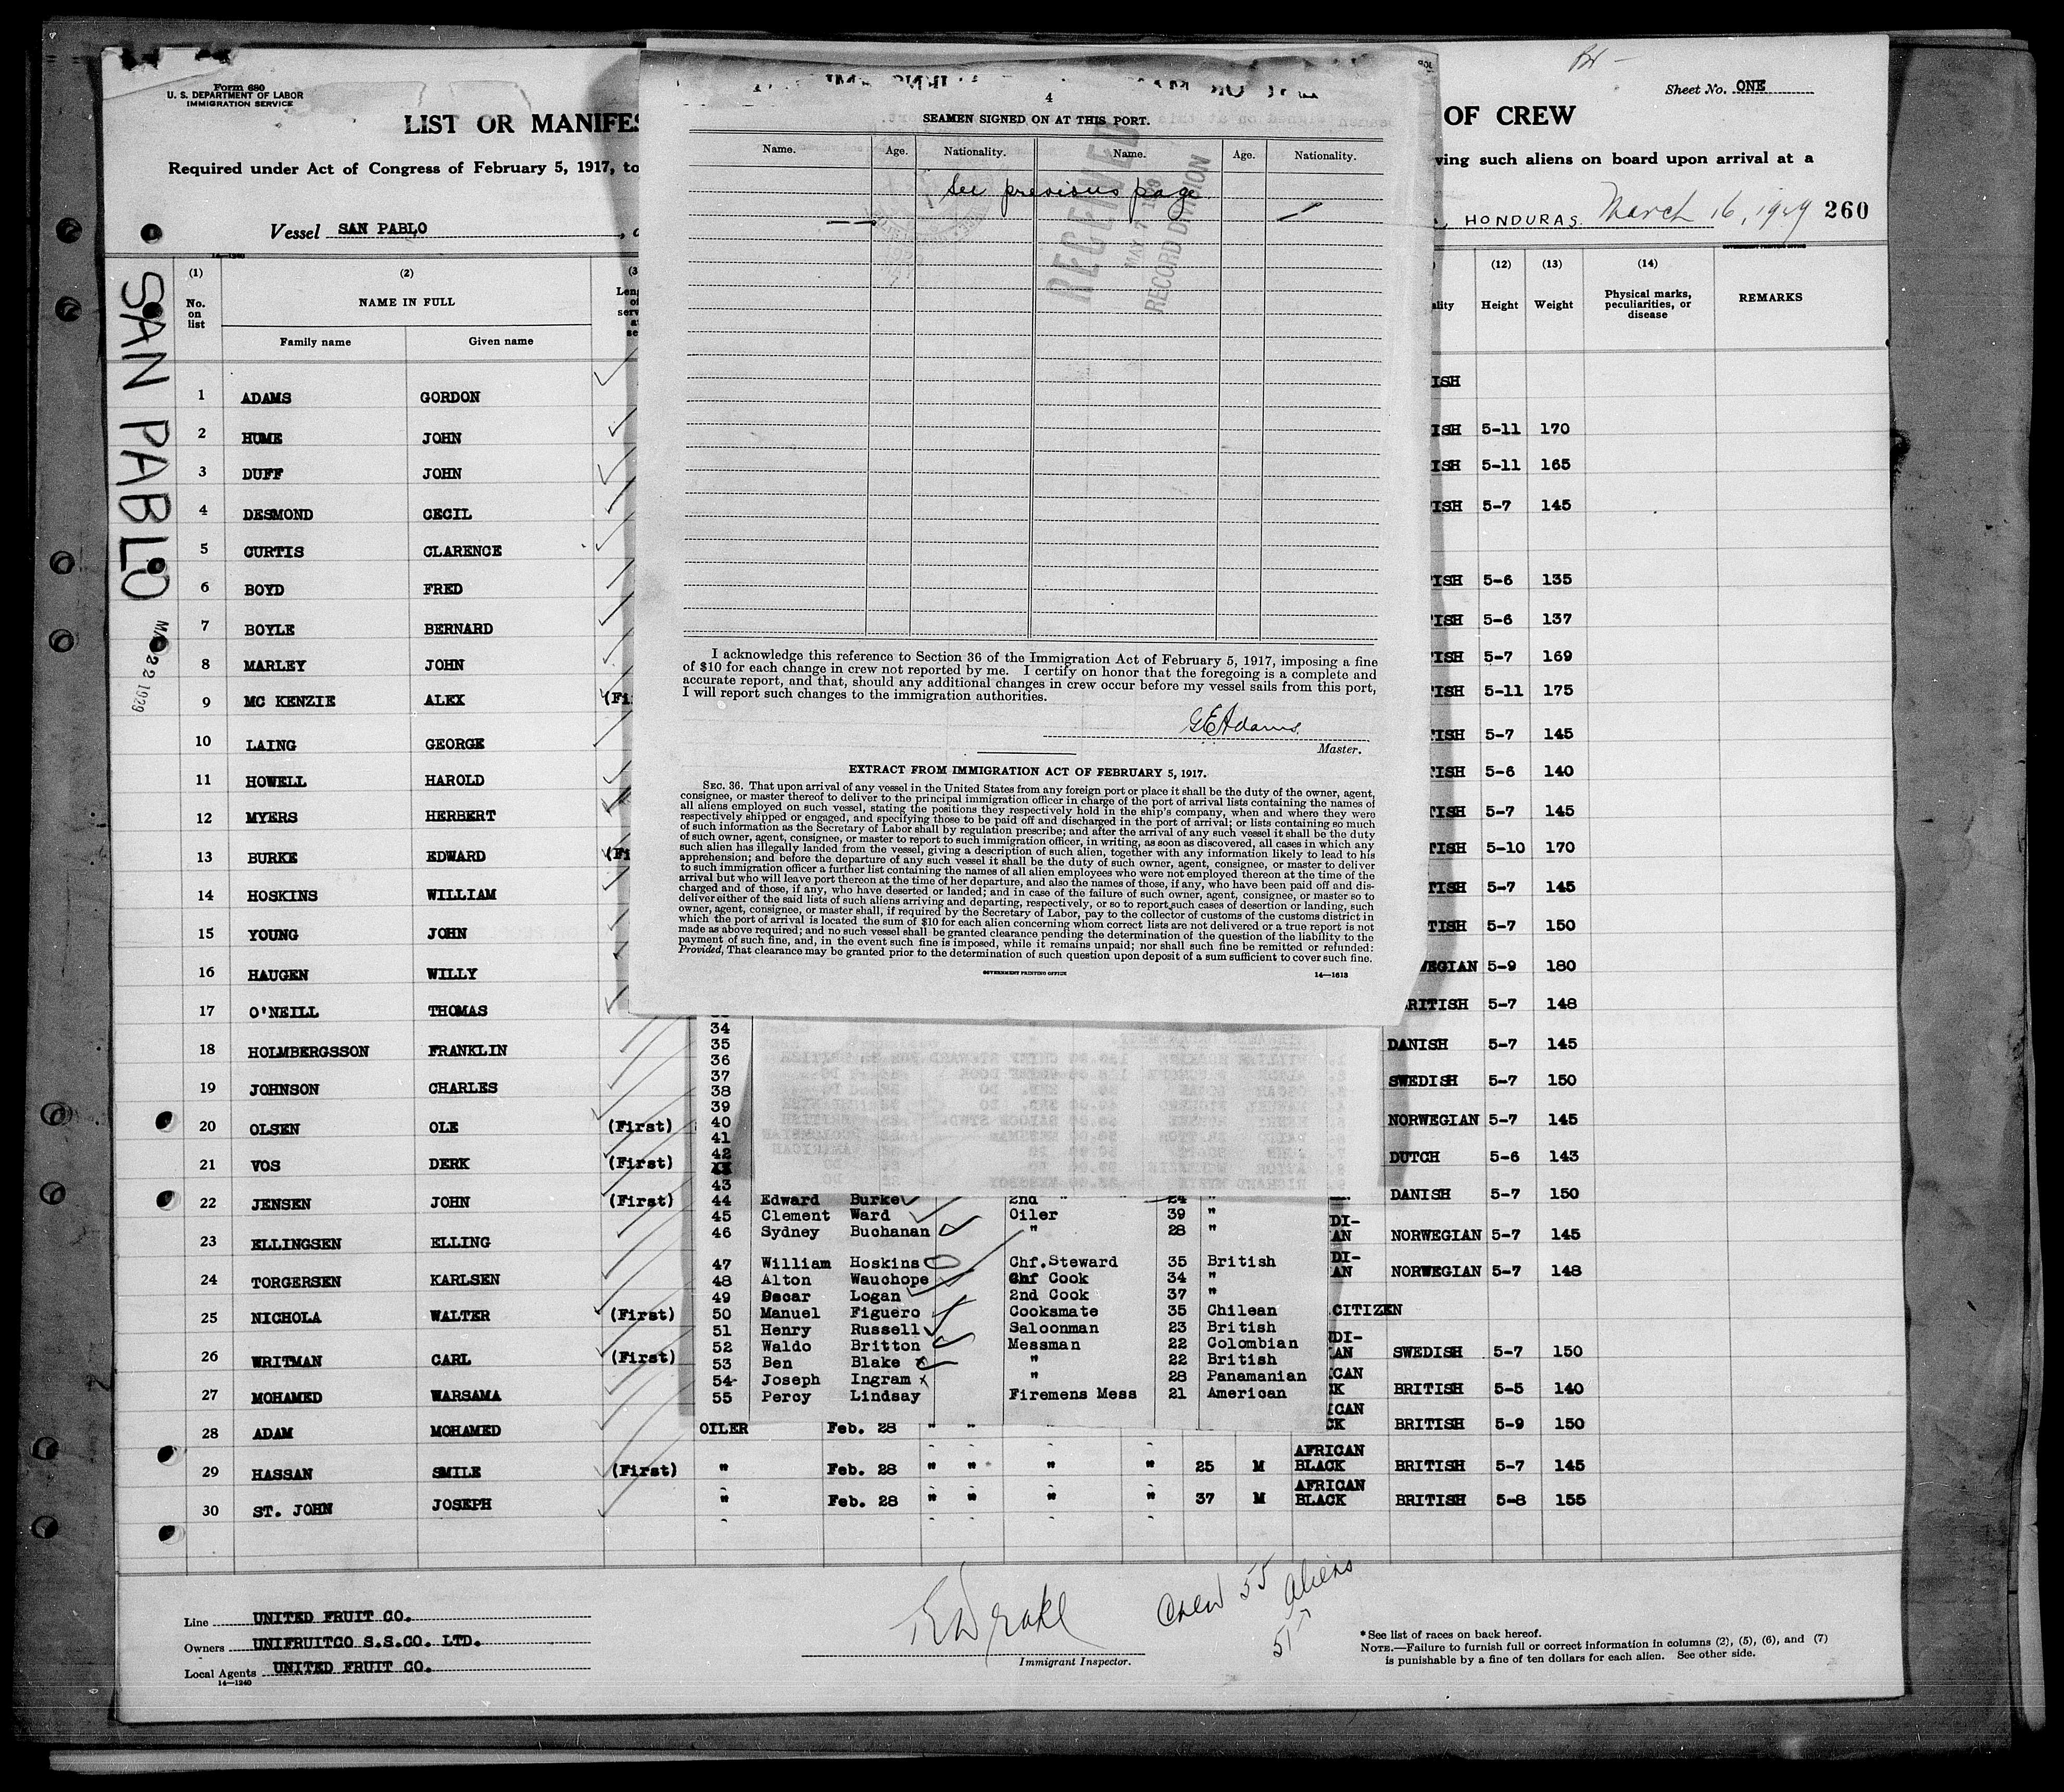 Form 680
U. S. DEPARTMENT OF LABOR
IMMIGRATION SERVICE
Sheet No. ONE
LIST OR MANIFES
OF CREW
Required under Act of Congress of February 5, 1917, to
ving such aliens on board upon arrival at a
Vessel SAN PABLO
HONDURAS. March 16, 1929 260
SAN PABLO
MA 22 1929
14—1240
GOVERNMENT PRINTING OFFICE
(1) (2) (12) (13) (14)
No. on list
NAME IN FULL
Family name Given name
Height Weight
Physical marks, peculiarities, or disease
REMARKS
1 ADAMS GORDON ISH
2 HUME JOHN ISH 5-11 170
3 DUFF JOHN ISH 5-11 165
4 DESMOND CECIL ISH 5-7 145
5 CURTIS CLARENCE
6 BOYD FRED ISH 5-6 135
7 BOYLE BERNARD ISH 5-6 137
8 MARLEY JOHN ISH 5-7 169
9 MC KENZIE ALEX (Fi ISH 5-11 175
10 LAING GEORGE TISH 5-7 145
11 HOWELL HAROLD TISH 5-6 140
12 MYERS HERBERT TISH 5-7 145
13 BURKE EDWARD (Fi TISH 5-10 170
14 HOSKINS WILLIAM TISH 5-7 145
15 YOUNG JOHN TISH 5-7 150
16 HAUGEN WILLY WEGIAN 5-9 180
17 O'NEILL THOMAS RITISH 5-7 148
18 HOLMBERGSSON FRANKLIN DANISH 5-7 145
19 JOHNSON CHARLES SWEDISH 5-7 150
20 OLSEN OLE (First) NORWEGIAN 5-7 145
21 VOS DERK (First) DUTCH 5-6 143
22 JENSEN JOHN (First) DANISH 5-7 150
23 ELLINGSEN ELLING DI-AN NORWEGIAN 5-7 145
24 TORGERSEN KARLSEN DI-AN NORWEGIAN 5-7 148
25 NICHOLA WALTER (First) .CITIZEN
26 WRITMAN CARL (First) DI-AN SWEDISH 5-7 150
27 MOHAMED WARSAMA ICAN CK BRITISH 5-5 140
28 ADAM MOHAMED OILER Feb. 28 " " " ICAN CK BRITISH 5-9 150
29 HASSAN SMILE (First) " Feb. 28 " " " " 25 M AFRICAN BLACK BRITISH 5-7 145
30 ST. JOHN JOSEPH " Feb. 28 " " " " 37 M AFRICAN BLACK BRITISH 5-8 155
4
SEAMEN SIGNED ON AT THIS PORT.
Name. Age. Nationality. Name. Age. Nationality.
See previous page
RECEIVED
MAY 7 1929
RECORD DIVISION
I acknowledge this reference to Section 36 of the Immigration Act of February 5, 1917, imposing a fine
of $10 for each change in crew not reported by me. I certify on honor that the foregoing is a complete and
accurate report, and that, should any additional changes in crew occur before my vessel sails from this port,
I will report such changes to the immigration authorities.
G E Adams
Master.
EXTRACT FROM IMMIGRATION ACT OF FEBRUARY 5, 1917.
SEC. 36. That upon arrival of any vessel in the United States from any foreign port or place it shall be the duty of the owner, agent,
consignee, or master thereof to deliver to the principal immigration officer in charge of the port of arrival lists containing the names of
all aliens employed on such vessel, stating the positions they respectively hold in the ship's company, when and where they were
respectively shipped or engaged, and specifying those to be paid off and discharged in the port of arrival; or lists containing so much
of such information as the Secretary of Labor shall by regulation prescribe; and after the arrival of any such vessel it shall be the duty
of such owner, agent, consignee, or master to report to such immigration officer, in writing, as soon as discovered, all cases in which any
such alien has illegally landed from the vessel, giving a description of such alien, together with any information likely to lead to his
apprehension; and before the departure of any such vessel it shall be the duty of such owner, agent, consignee, or master to deliver
to such immigration officer a further list containing the names of all alien employees who were not employed thereon at the time of the
arrival but who will leave port thereon at the time of her departure, and also the names of those, if any, who have been paid off and dis-
charged and of those, if any, who have deserted or landed; and in case of the failure of such owner, agent, consignee, or master so to
deliver either of the said lists of such aliens arriving and departing, respectively, or so to report such cases of desertion or landing, such
owner, agent, consignee, or master shall, if required by the Secretary of Labor, pay to the collector of customs of the customs district in
which the port of arrival is located the sum of $10 for each alien concerning whom correct lists are not delivered or a true report is not
made as above required; and no such vessel shall be granted clearance pending the determination of the question of the liability to the
payment of such fine, and, in the event such fine is imposed, while it remains unpaid; nor shall such fine be remitted or refunded:
Provided, That clearance may be granted prior to the determination of such question upon deposit of a sum sufficient to cover such fine.
GOVERNMENT PRINTING OFFICE
14—1613
34
35
36
37
38
39
40
41
42
43
44 Edward Burke 2nd " 24 "
45 Clement Ward Oiler 39 "
46 Sydney Buchanan " 28 "
47 William Hoskins Chf.Steward 35 British
48 Alton Wauchope Chf Cook 34 "
49 Oscar Logan 2nd Cook 37 "
50 Manuel Figuero Cooksmate 35 Chilean
51 Henry Russell Saloonman 23 British
52 Waldo Britton Messman 22 Colombian
53 Ben Blake " 22 British
54 Joseph Ingram " 28 Panamanian
55 Percy Lindsay Firemens Mess 21 American
Crew 55 aliens
Line UNITED FRUIT CO.
Owners UNIFRUITCO S.S.CO. LTD.
Local Agents UNITED FRUIT CO.
14—1240
Immigrant Inspector.
*See list of races on back hereof.
NOTE.—Failure to furnish full or correct information in columns (2), (5), (6), and (7)
is punishable by a fine of ten dollars for each alien. See other side.